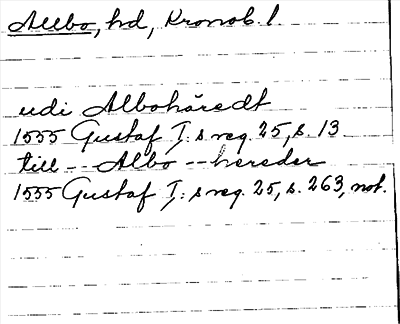 Allbo, hd, Kronob. l.
udi Albohäredt
1555 Gustaf I:s reg. 25, s. 13
till -- Albo -- hereder
1555 Gustaf I:s reg. 25, s. 263, not.